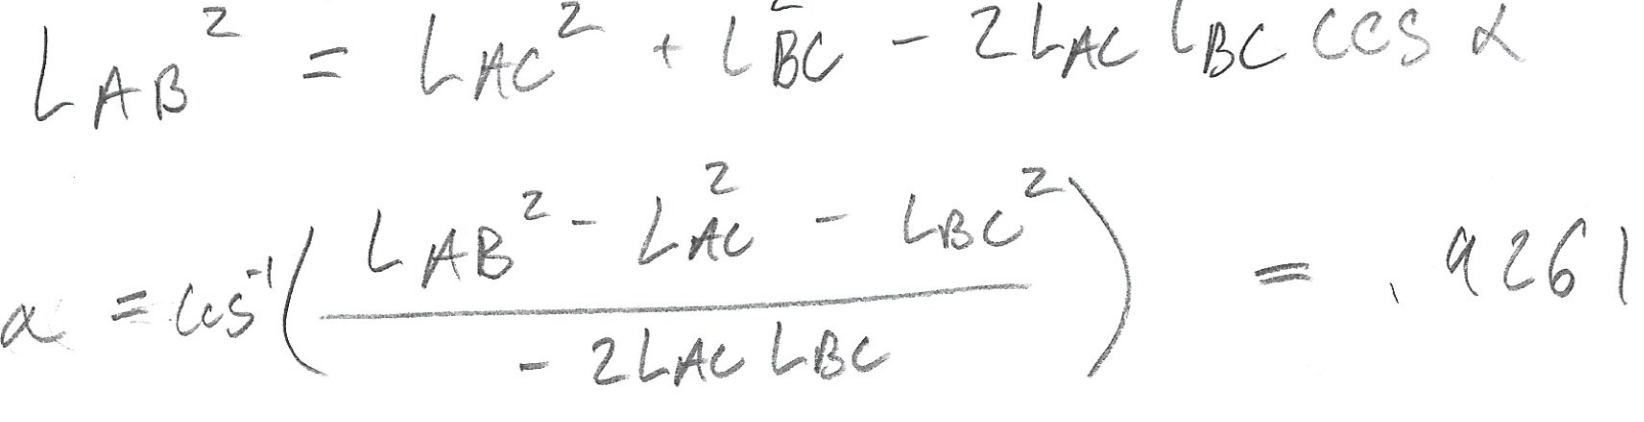 L_AB² = L_AC² + L_BC² - 2L_AC L_BC cos α
α = cos⁻¹((L_AB² - L_AC² - L_BC²)/(-2L_AC L_BC)) = .9261